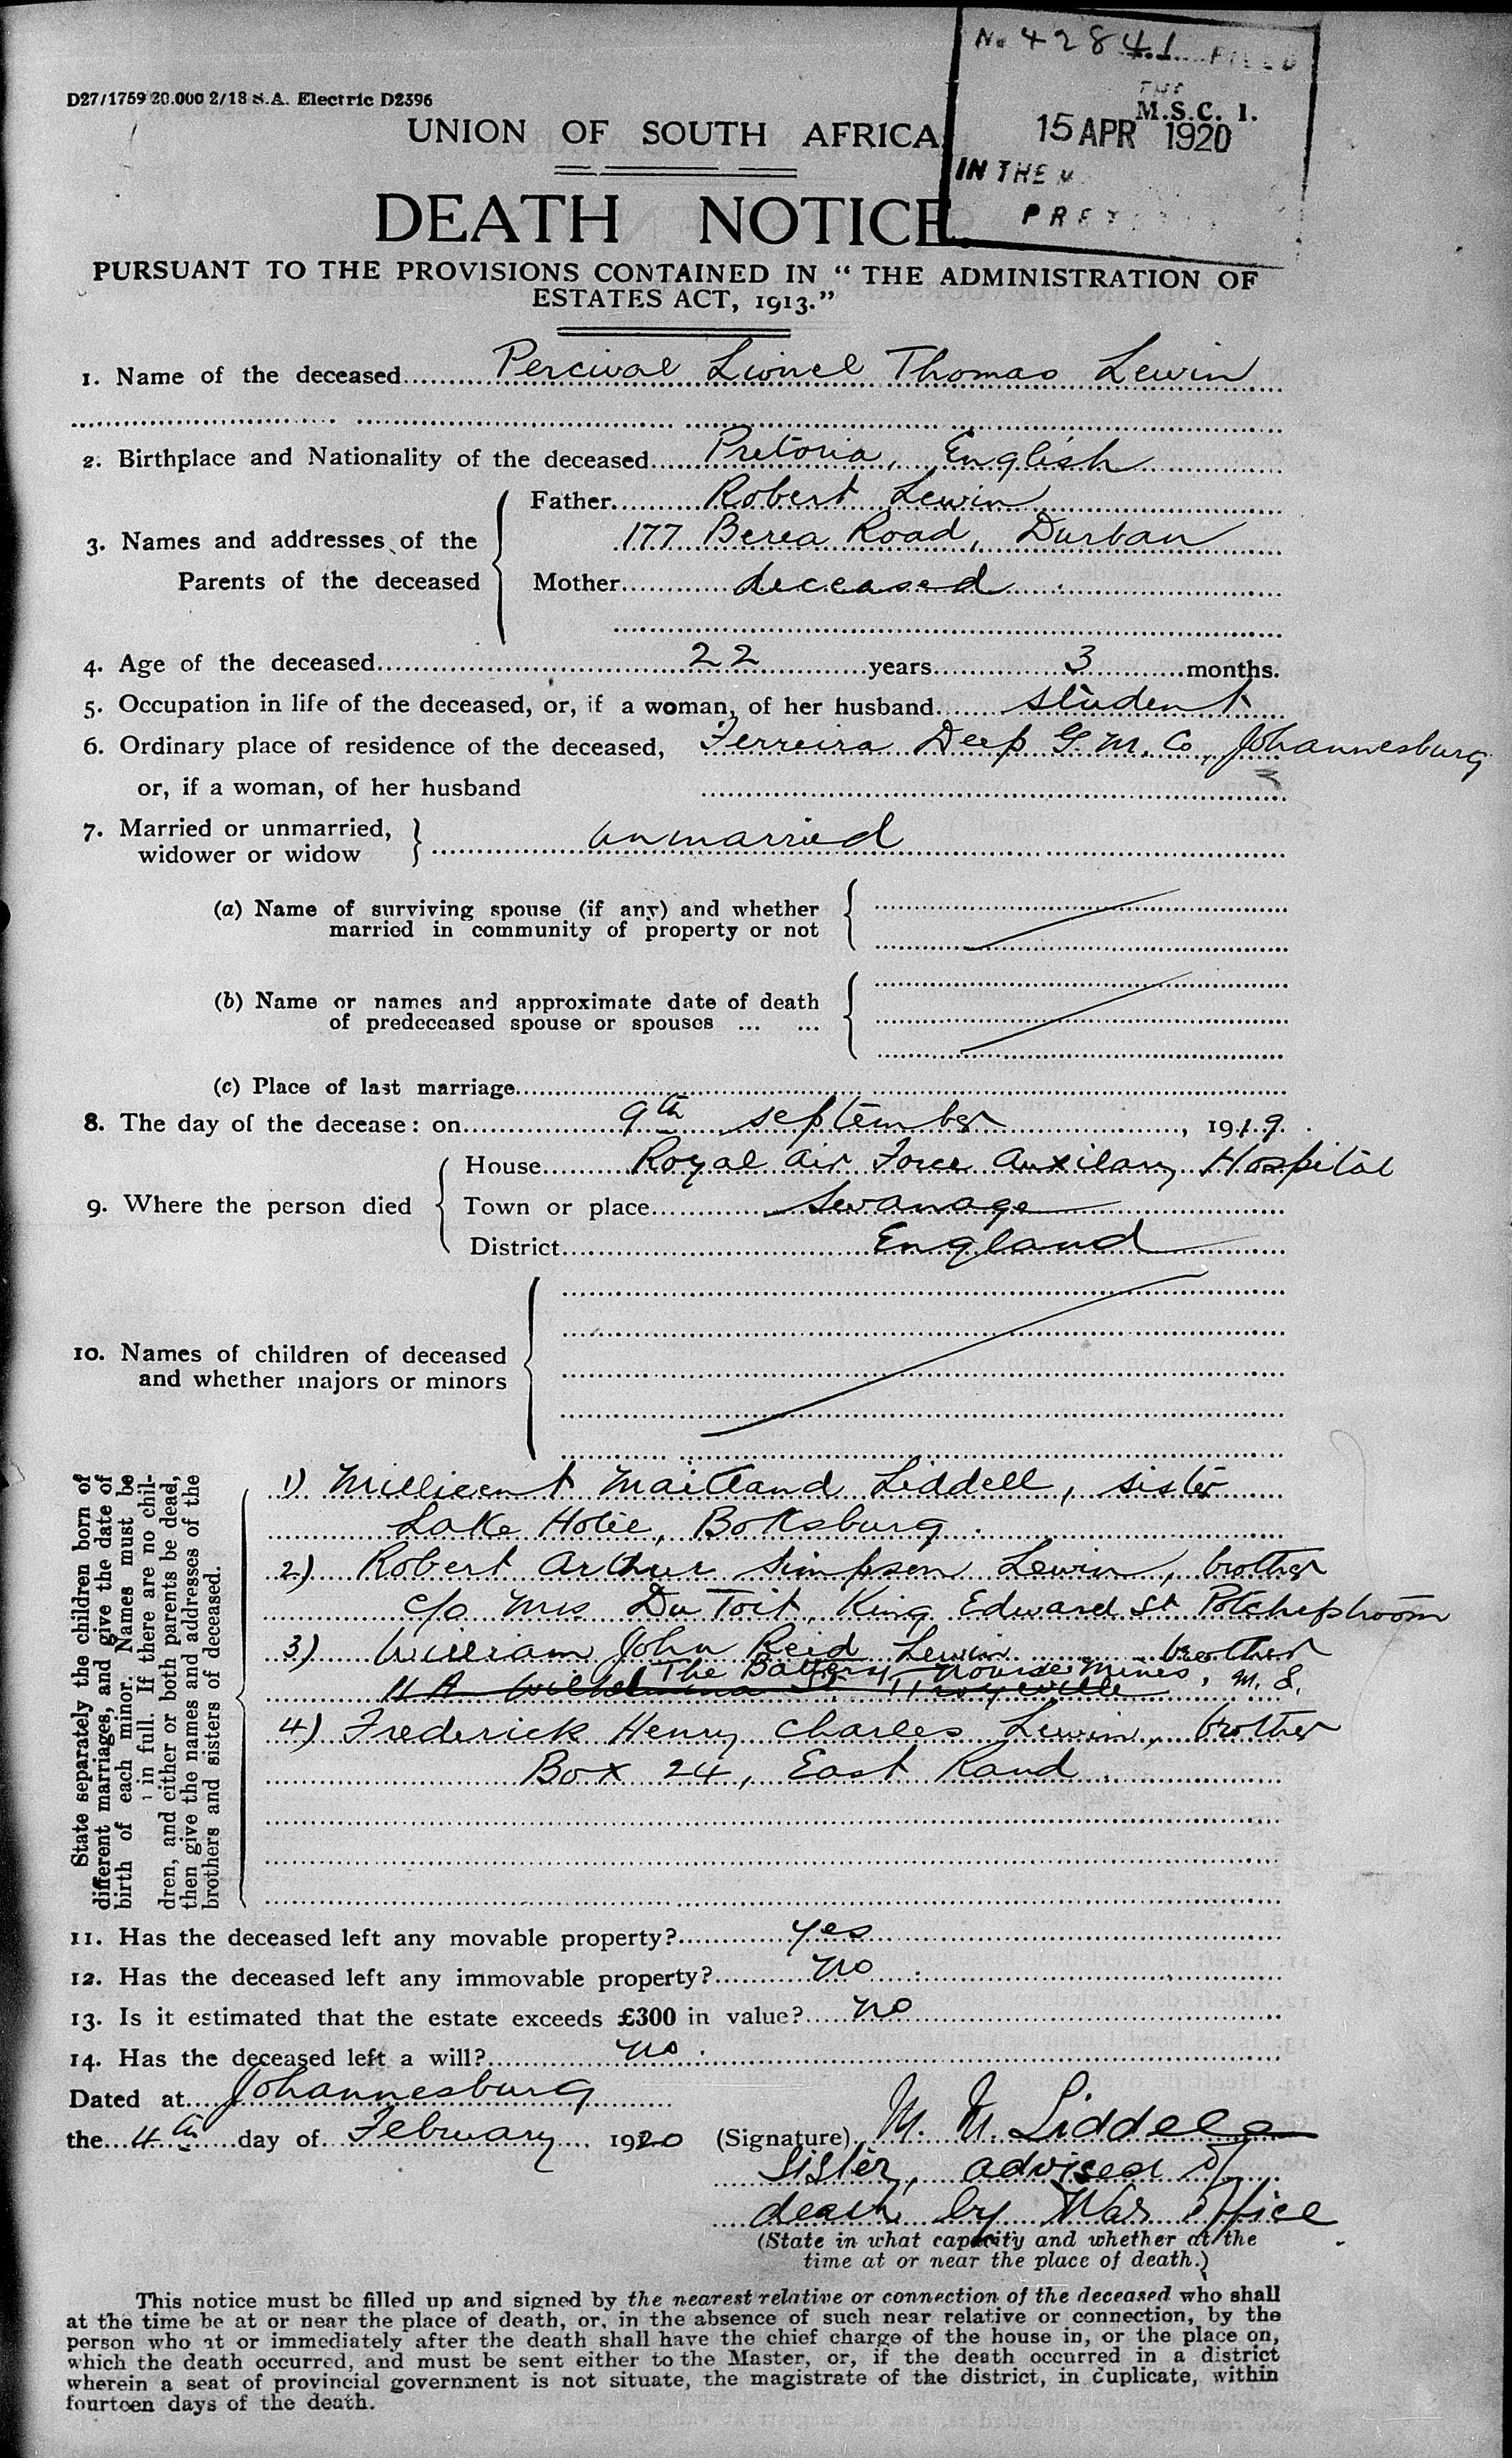 No 42841 FILED
THE
D27/1759 20.000 2/18 S.A. Electric D2396
M.S.C. 1.
UNION OF SOUTH AFRICA
15 APR 1920
IN THE
DEATH NOTICE.
PURSUANT TO THE PROVISIONS CONTAINED IN “ THE ADMINISTRATION OF
ESTATES ACT, 1913.”
1. Name of the deceased Percival Lionel Thomas Lewin
2. Birthplace and Nationality of the deceased Pretoria, English
3. Names and addresses of the Parents of the deceased
Father Robert Lewin
177 Berea Road, Durban
Mother deceased
4. Age of the deceased 22 years 3 months.
5. Occupation in life of the deceased, or, if a woman, of her husband student
6. Ordinary place of residence of the deceased, Ferreira Deep G.M. Co, Johannesburg
or, if a woman, of her husband
7. Married or unmarried, unmarried
widower or widow
(a) Name of surviving spouse (if any) and whether
married in community of property or not
(b) Name or names and approximate date of death
of predeceased spouse or spouses ... ...
(c) Place of last marriage
8. The day of the decease: on 9th september, 1919.
9. Where the person died
House Royal Air Force Auxilary Hospital
Town or place Swanage
District England
10. Names of children of deceased
and whether majors or minors
State separately the children born of
different marriages, and give the date of
birth of each minor. Names must be
in full. If there are no chil-
dren, and either or both parents be dead,
then give the names and addresses of the
brothers and sisters of deceased.
1) Millicent Maitland Liddell, sister
Lake Hotel, Boksburg.
2) Robert Arthur Simpson Lewin, brother
c/o Mrs Du Toit, King Edward St Potchefstroom
3) William John Reid Lewin brother
The Battery, Nourse Mines,
11A Wilhelmina St. Troyeville
4) Frederick Henry Charles Lewin, brother
Box 24, East Rand
11. Has the deceased left any movable property? yes
12. Has the deceased left any immovable property? no
13. Is it estimated that the estate exceeds £300 in value? no
14. Has the deceased left a will? no
Dated at Johannesburg
the 4th day of February 1920 (Signature) M. M. Liddell
Sister, advised of
death by War Office
(State in what capacity and whether at the
time at or near the place of death.)
This notice must be filled up and signed by the nearest relative or connection of the deceased who shall
at the time be at or near the place of death, or, in the absence of such near relative or connection, by the
person who at or immediately after the death shall have the chief charge of the house in, or the place on,
which the death occurred, and must be sent either to the Master, or, if the death occurred in a district
wherein a seat of provincial government is not situate, the magistrate of the district, in duplicate, within
fourteen days of the death.